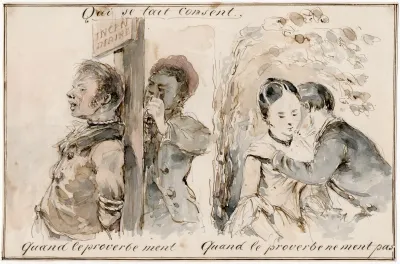 Qui se tait Consent.
INCEN
DIAIRE
Quand le proverbe ment
Quand le proverbe ne ment pas